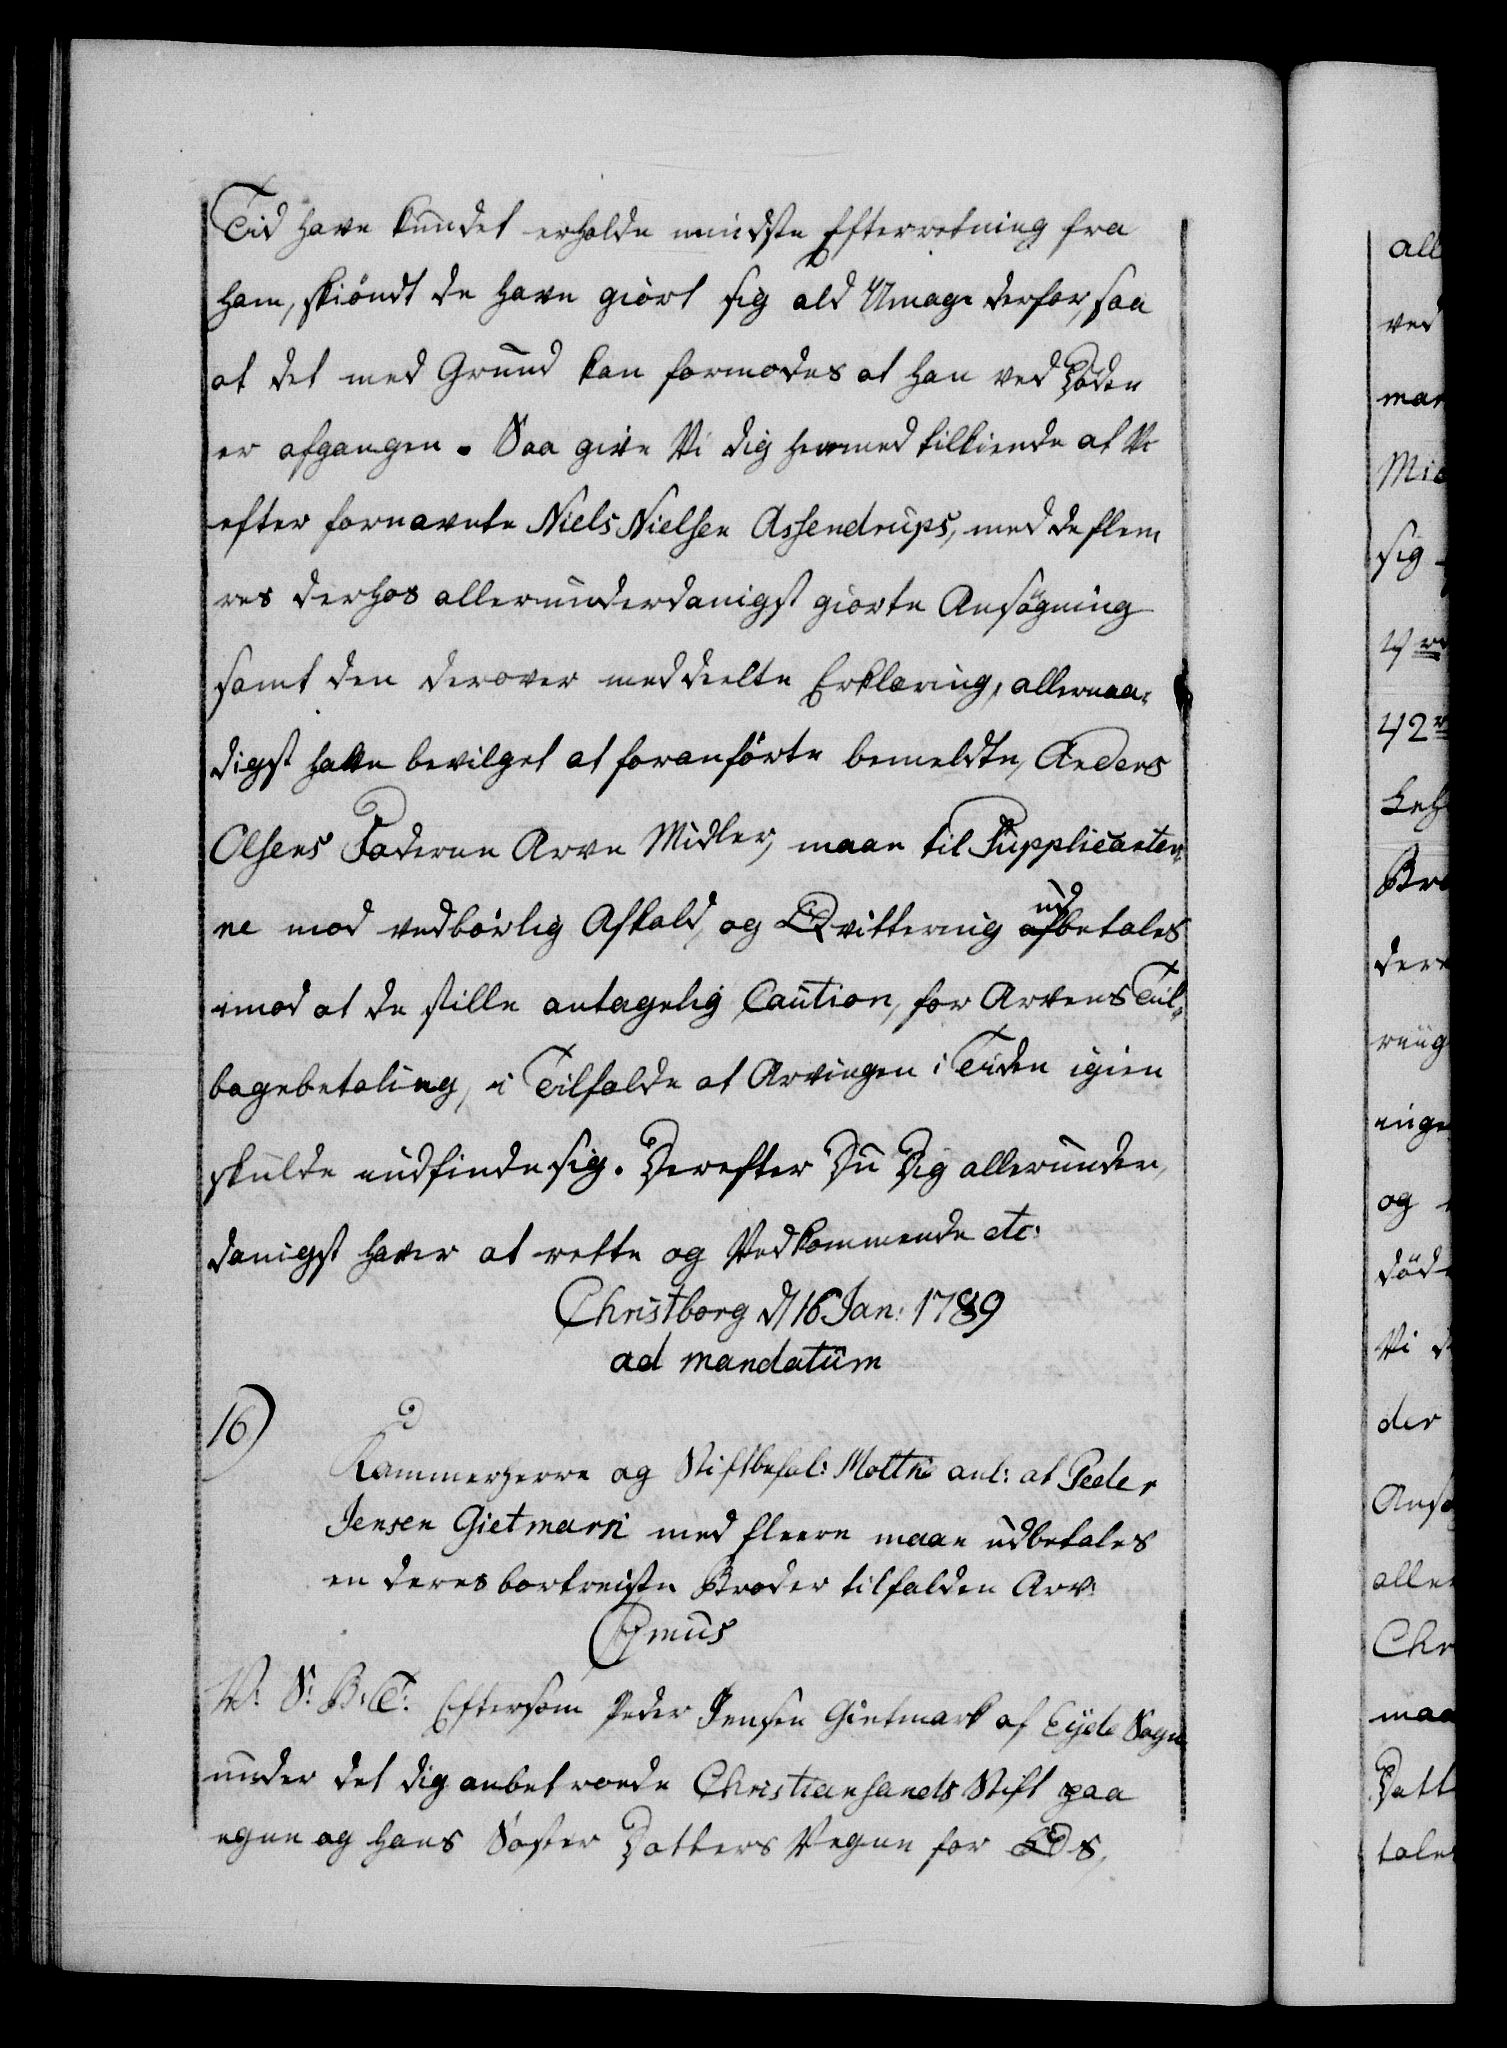 Tid have kundet erholde mindste Efterretning fra
ham, skiöndt de have giört sig ald Umage derfor, saa
at det med Grund kan formodes at han ved Döden
er afgangen. Saa give Vi dig hermed tilkiende at Vi
efter fornævnte Niels Nielsen Assendrups, med de flee¬
res derhos allerunderdanigst giorte Ansögning
samt den derover meddeelte Erklæring, allernaa¬
digst have bevilget at foranförte bemeldte, Anders
Olsens Fæderne Arve Midler, maae til Supplicanter¬
ne mod vedbörlig Afkald, og Qvittering udbetales
imod at de stille antagelig Caution, for Arvens Til¬
bagebetaling, i Tilfælde at Arvingen i Tiden igien
skulde indfinde sig. Derefter Du Dig allerunder¬
danigst haver at rette og Vedkommende etc:
Christborg d 16 Jan: 1789
ad mandatum
16)
Kammerherre og Stiftbefal: Moltke anl: at Peder
Jensen Gietmark med fleere maae udbetales
en deres bortreiste Broder tilfalden Arv.
Cſmus
V: S: B: T: Eftersom Peder Jensen Gietmark af Eyde Sogn
under det dig anbetroede Christiansands Stift paa
egne og hans Söster Datters Vegne for